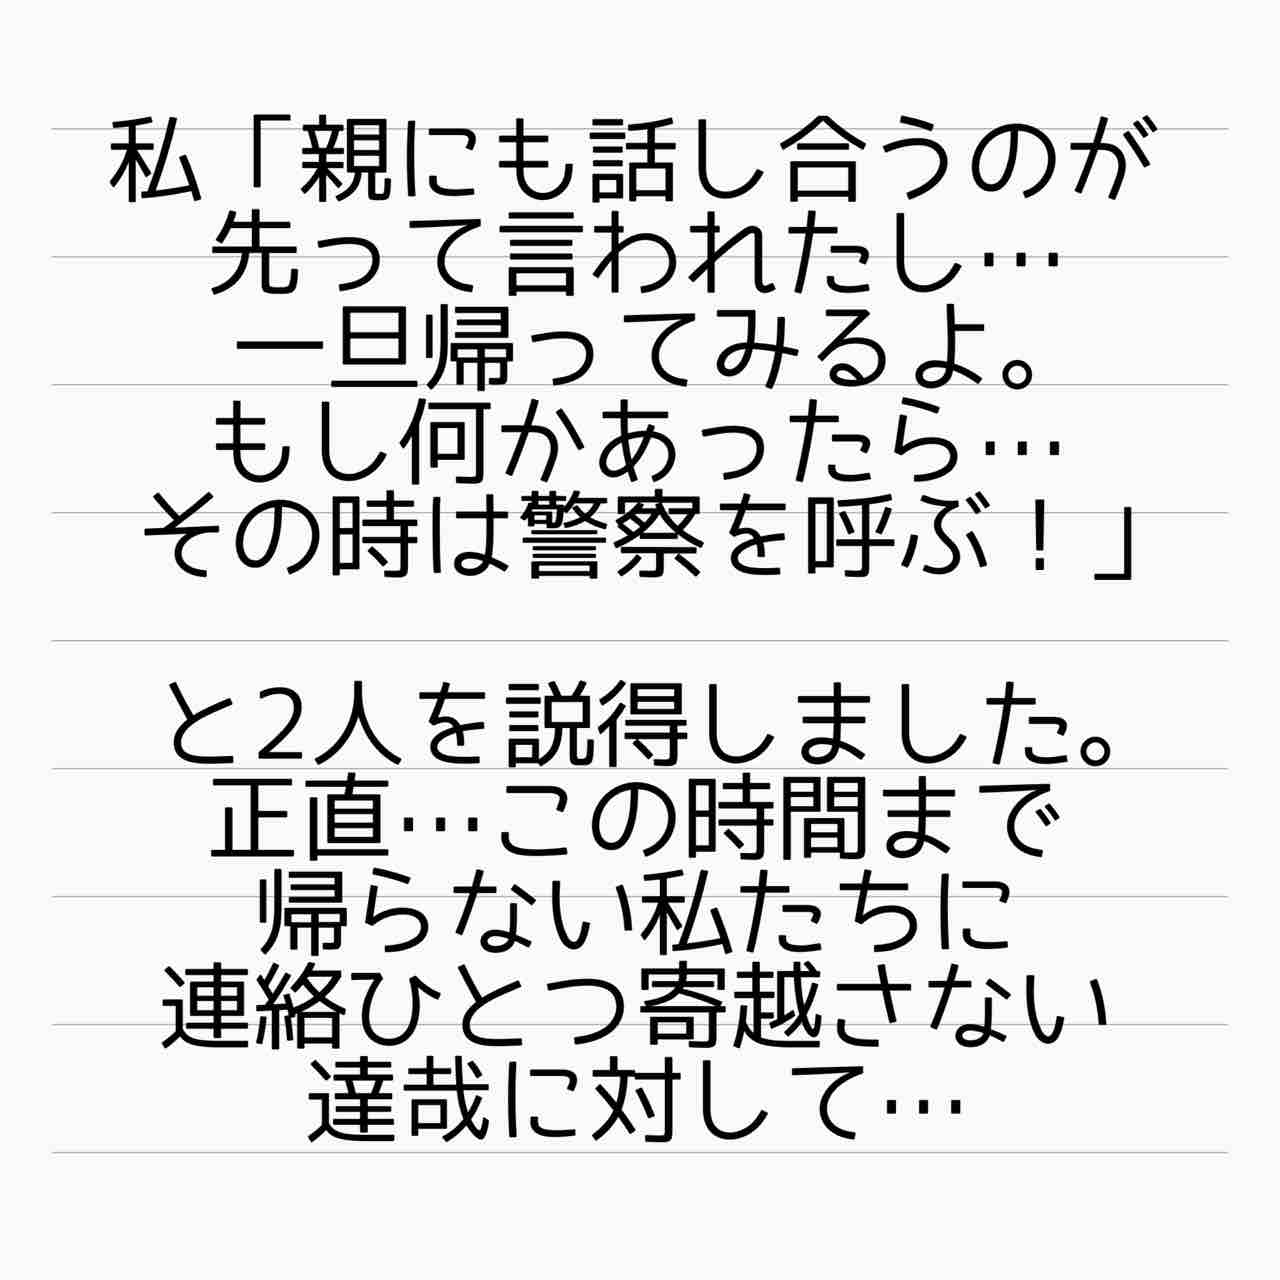 私「親にも話し合うのが
先って言われたし…
一旦帰ってみるよ。
もし何かあったら…
その時は警察を呼ぶ！」
と2人を説得しました。
正直…この時間まで
帰らない私たちに
連絡ひとつ寄越さない
達哉に対して…